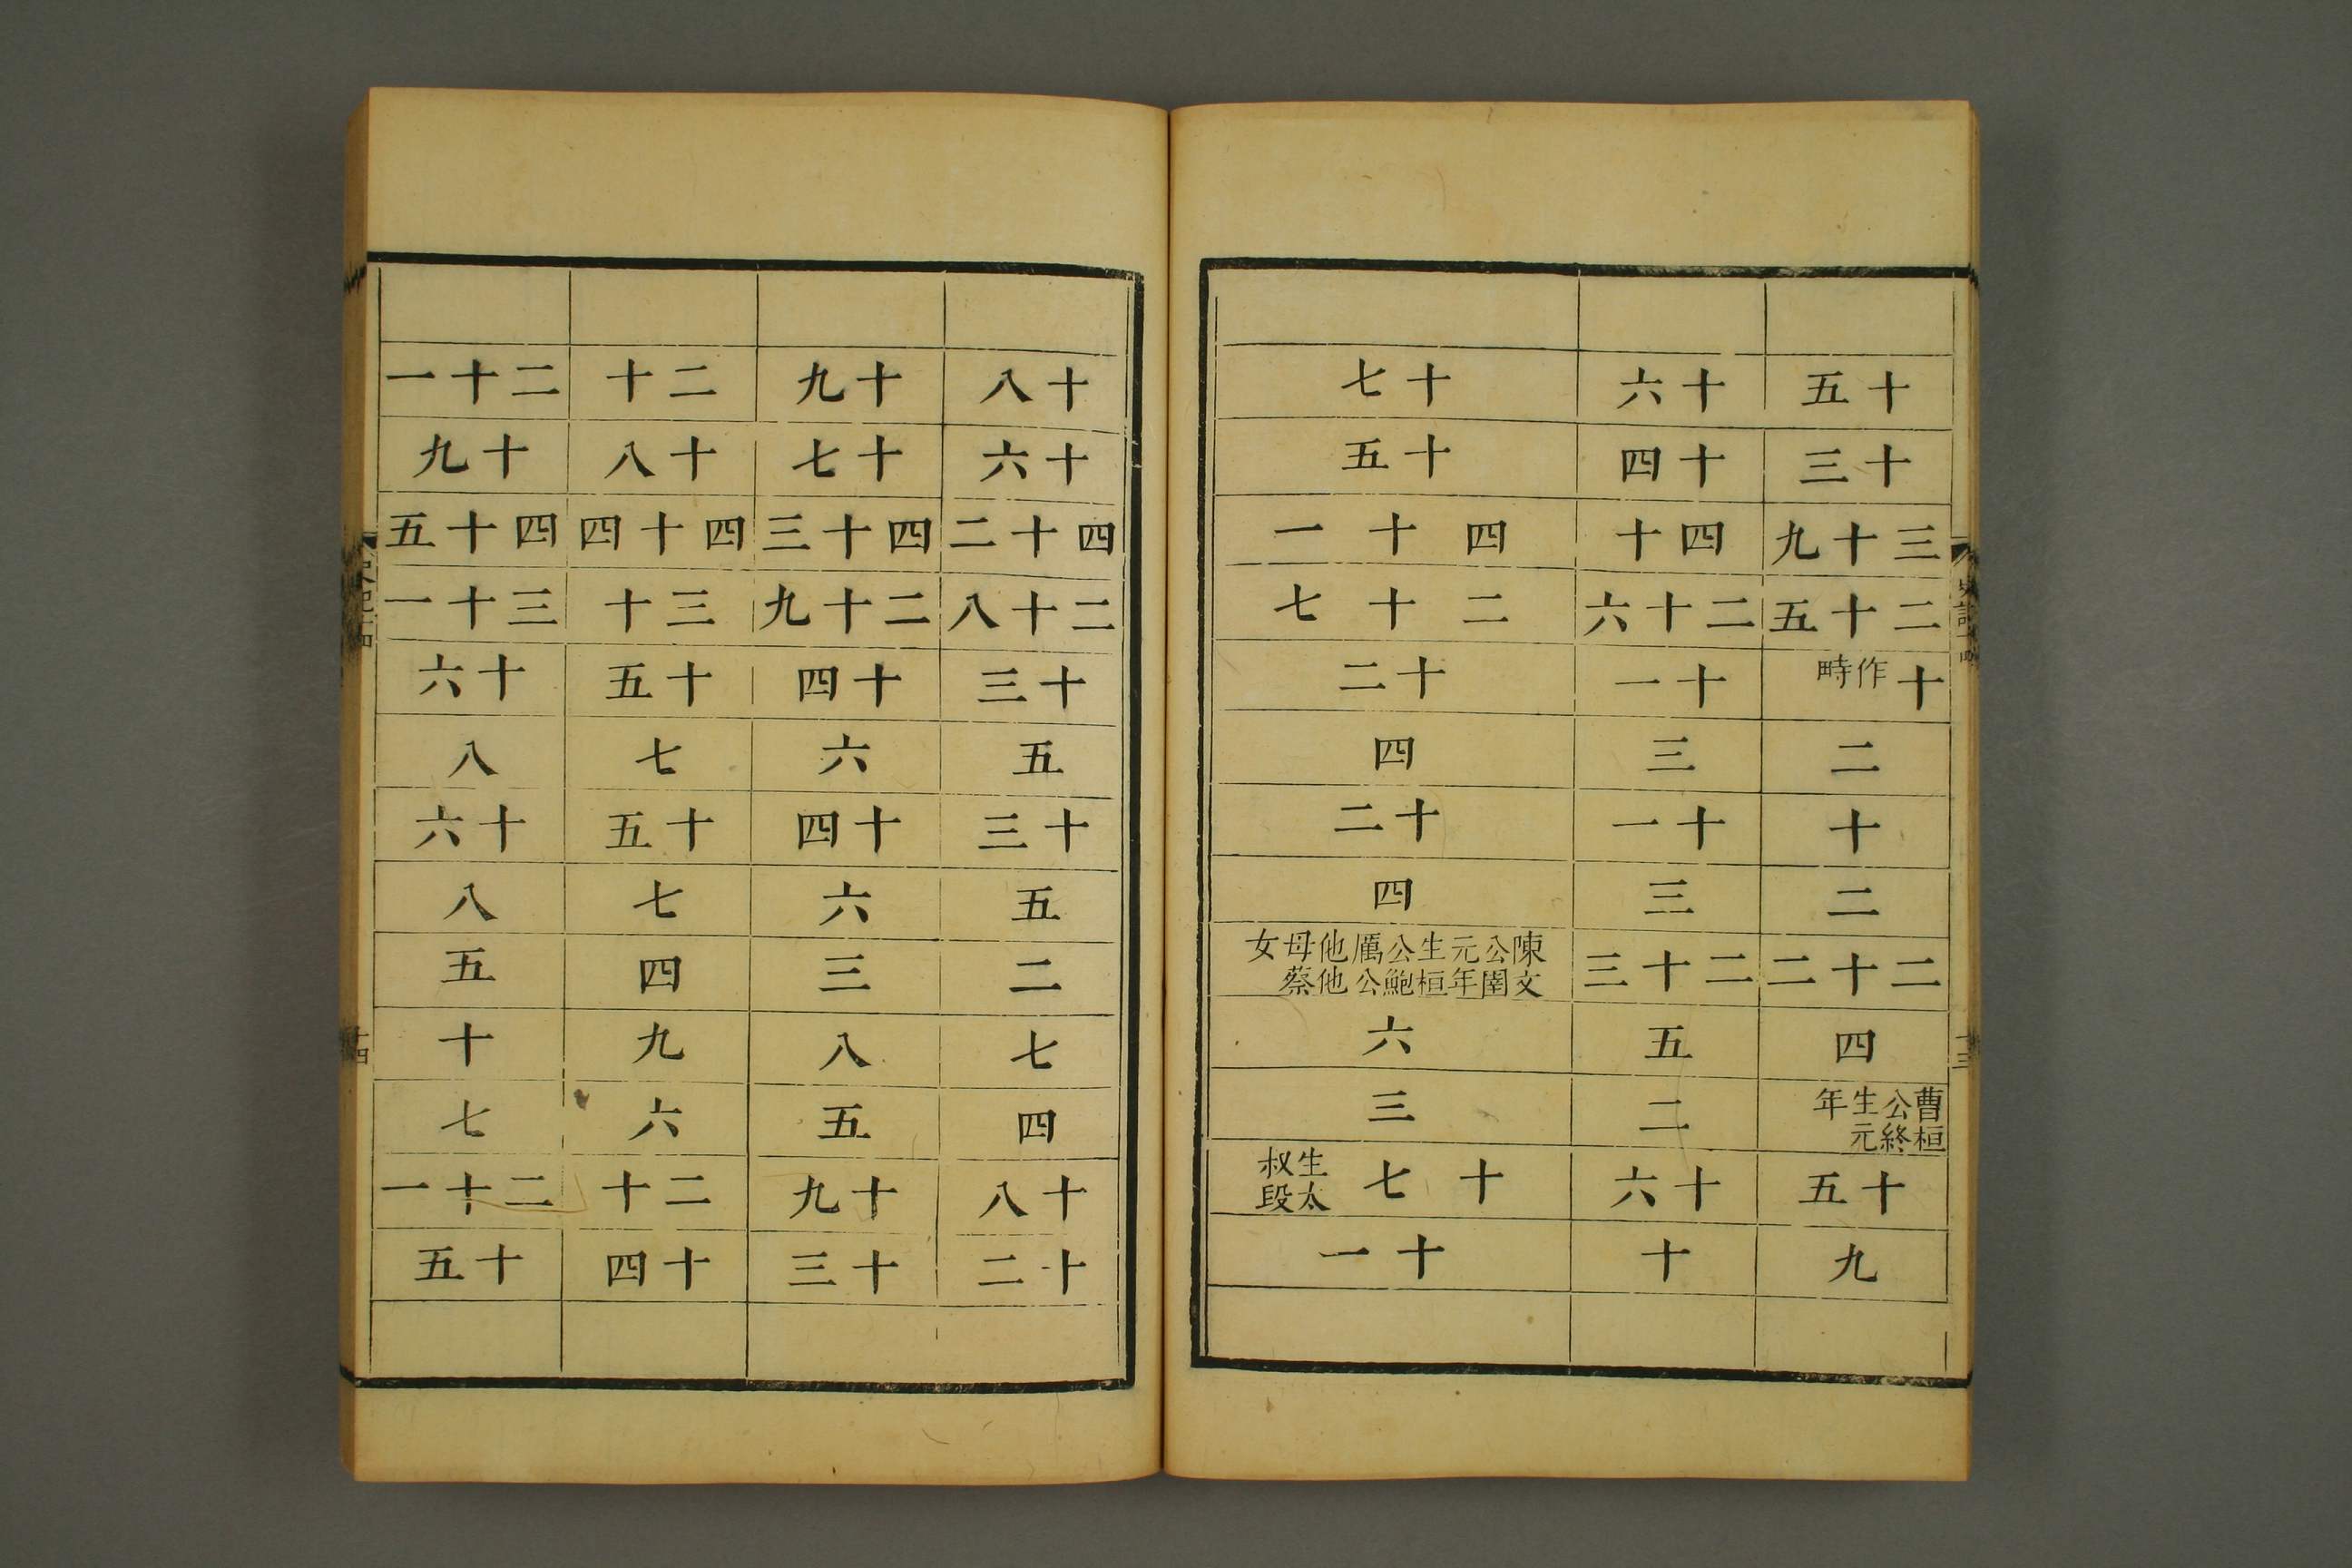 史記十四
十三
十五
十三
三十九
二十五
十 作畤
二
十
二
二十二
四
曹桓公終生元年
十五
九
十六
十四
四十
二十六
十一
三
十一
三
二十三
五
二
十六
十
十七
十五
四十一
二十七
十二
四
十二
四
陳文公圉元年生桓公鮑厲公他他母蔡女
六
三
十七 生太叔段
十一
十八
十六
四十二
二十八
十三
五
十三
五
二
七
四
十八
十二
十九
十七
四十三
二十九
十四
六
十四
六
三
八
五
十九
十三
二十
十八
四十四
三十
十五
七
十五
七
四
九
六
二十
十四
二十一
十九
四十五
三十一
十六
八
十六
八
五
十
七
二十一
十五
史記十四
十四